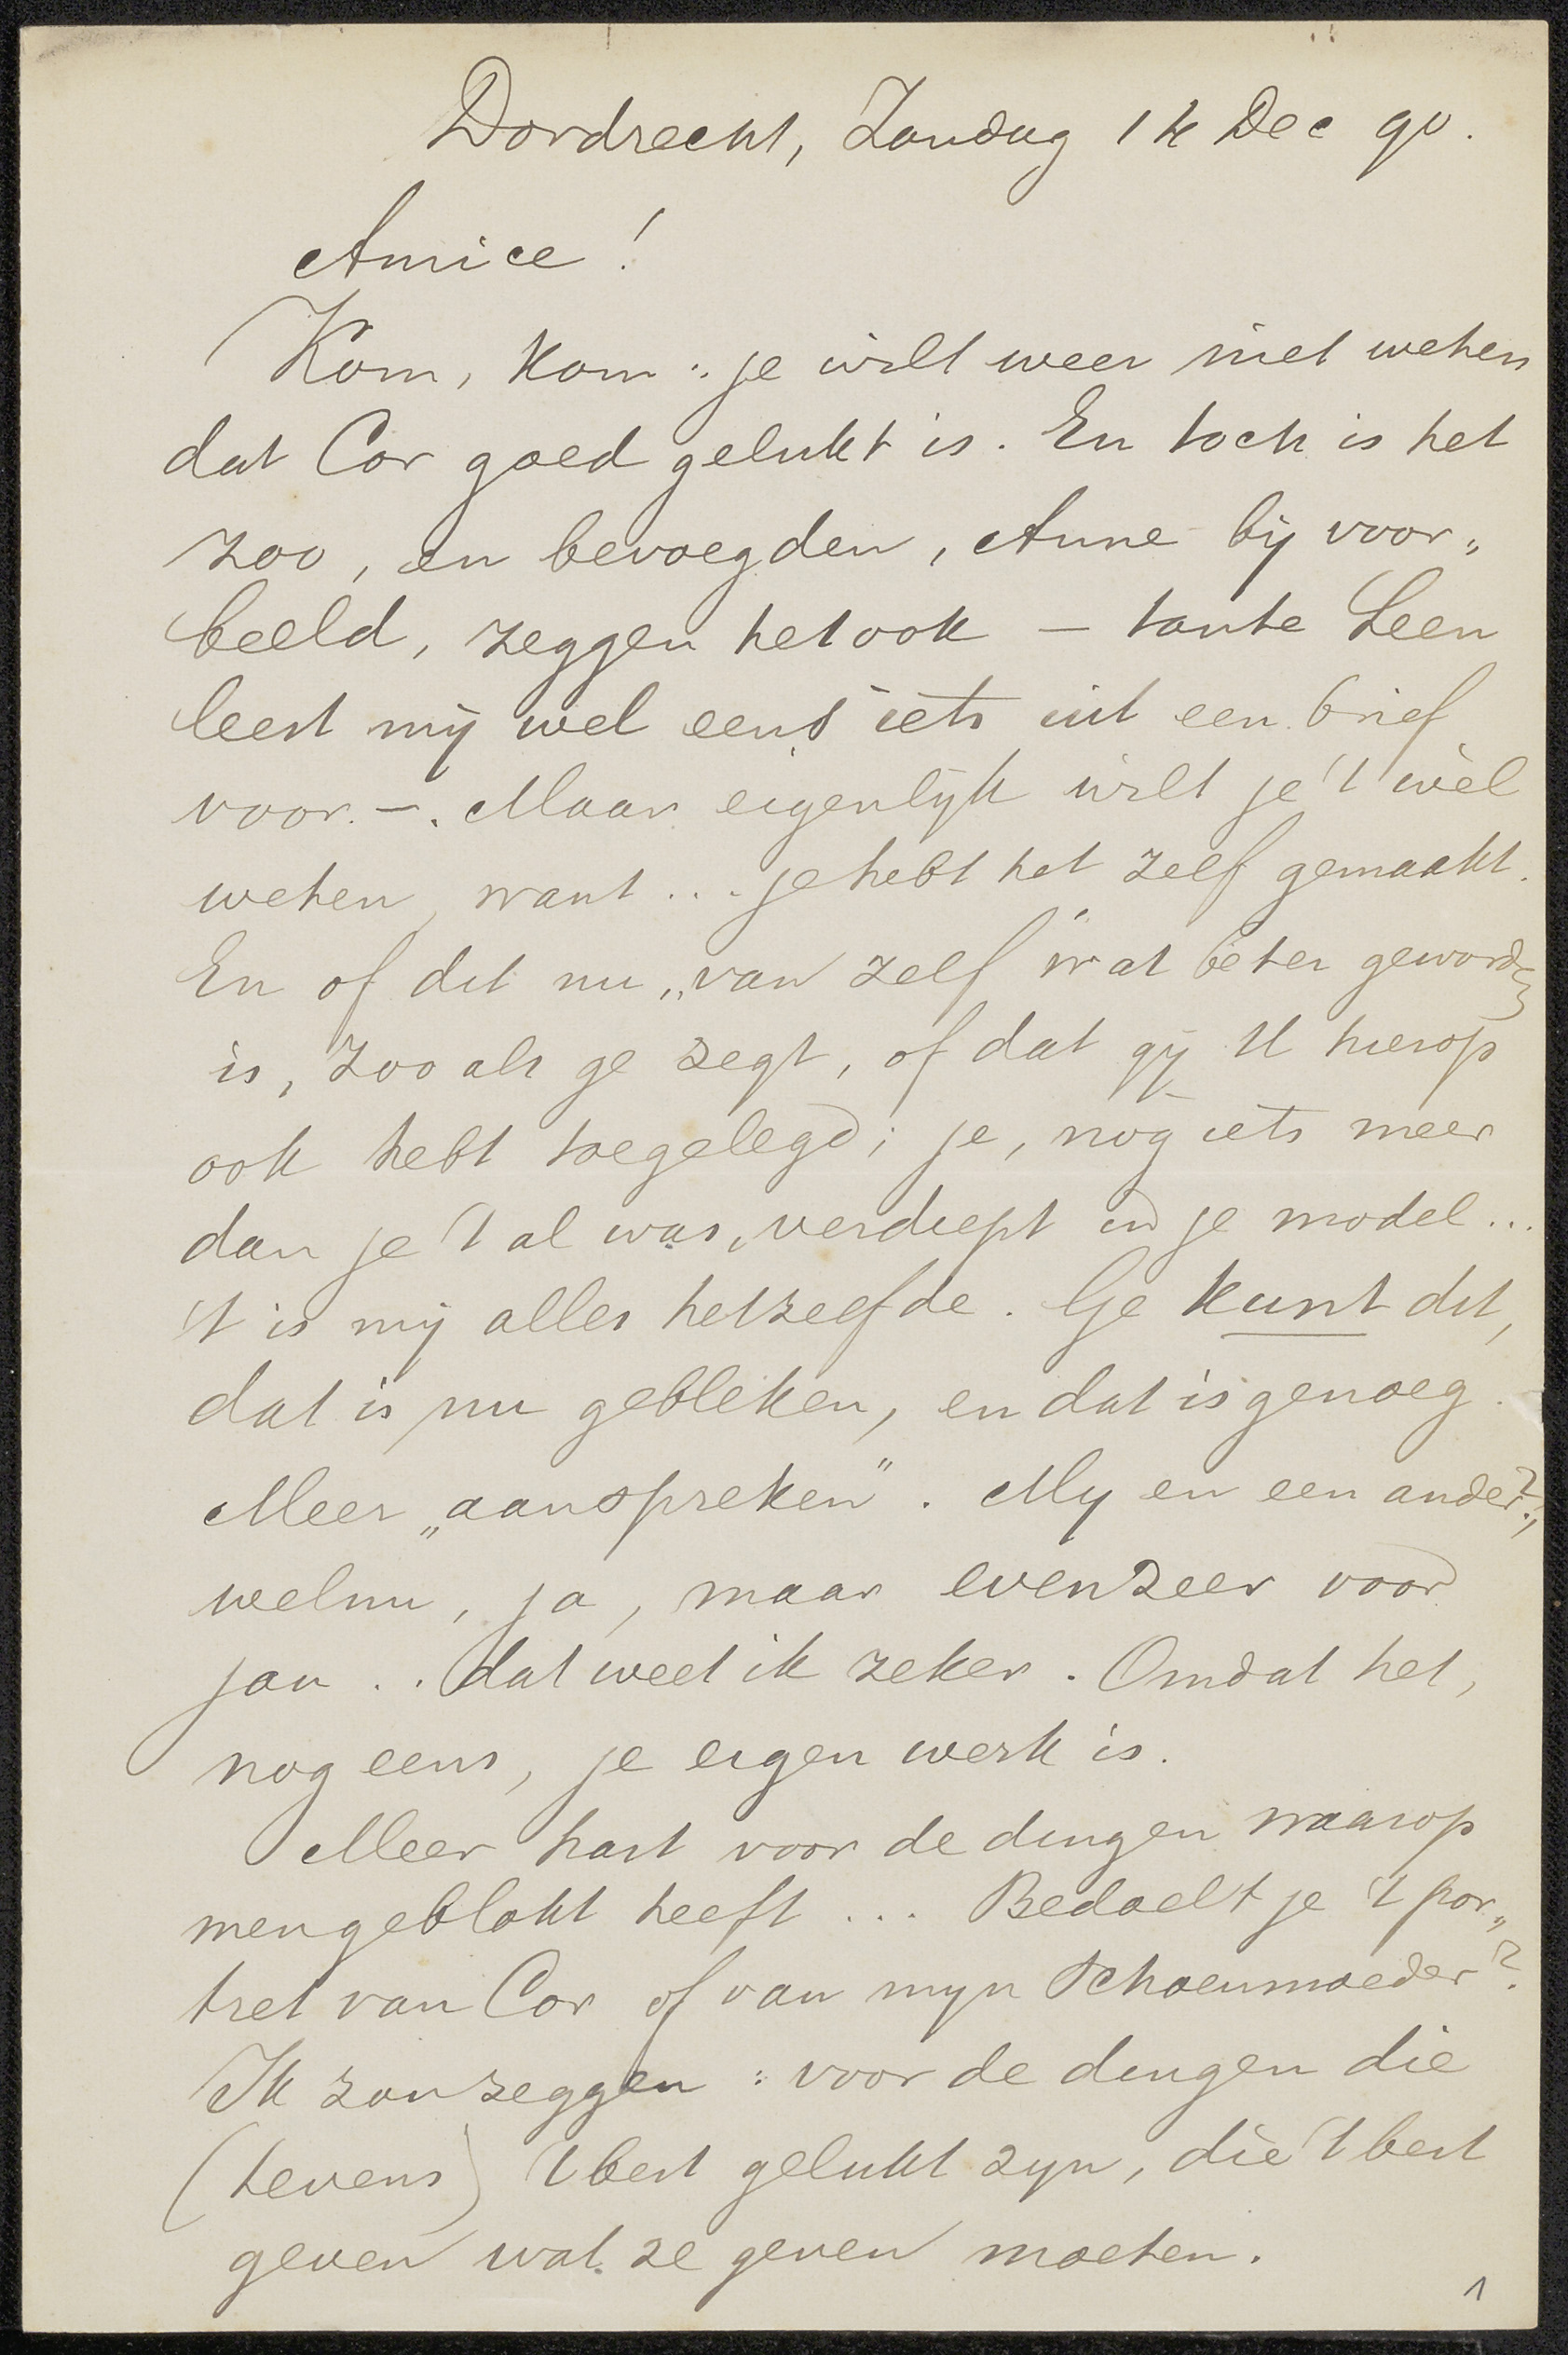 Dordrecht, Zondag 14 Dec 90.
Amice!
Kom, kom: je wilt weer niet weten
dat Cor goed gelukt is. En toch is het
zoo, en bevoegden, Anne bij voor„
beeld, zeggen het ook — tante Leen
leest mij wel eens iets uit een brief
voor. —. Maar eigenlijk wilt je 't wèl
weten, want ... je hebt het zelf gemaakt.
En of dit nu „van zelf" wat beter geworden
is, zooals ge zegt, of dat gij U hierop
ook hebt toegelegd; je, nòg iets meer
dan je 't al was, verdiept in je model...
't is mij alles hetzelfde. Ge kunt dit,
dat is nu gebleken, en dat is genoeg.
Meer „aanspreken". My en een ander?,
welnu, ja, maar evenzeer voor
jou .. dat weet ik zeker. Omdat het,
nog eens, je eigen werk is.
Meer hart voor de dingen waarop
men geblokt heeft ... Bedoelt je 't por„
tret van Cor of van mijn schoenmoeder?
Ik zou zeggen: voor de dingen die
(tevens) 't best gelukt zyn, die 't best
geven wat ze geven moeten.
1